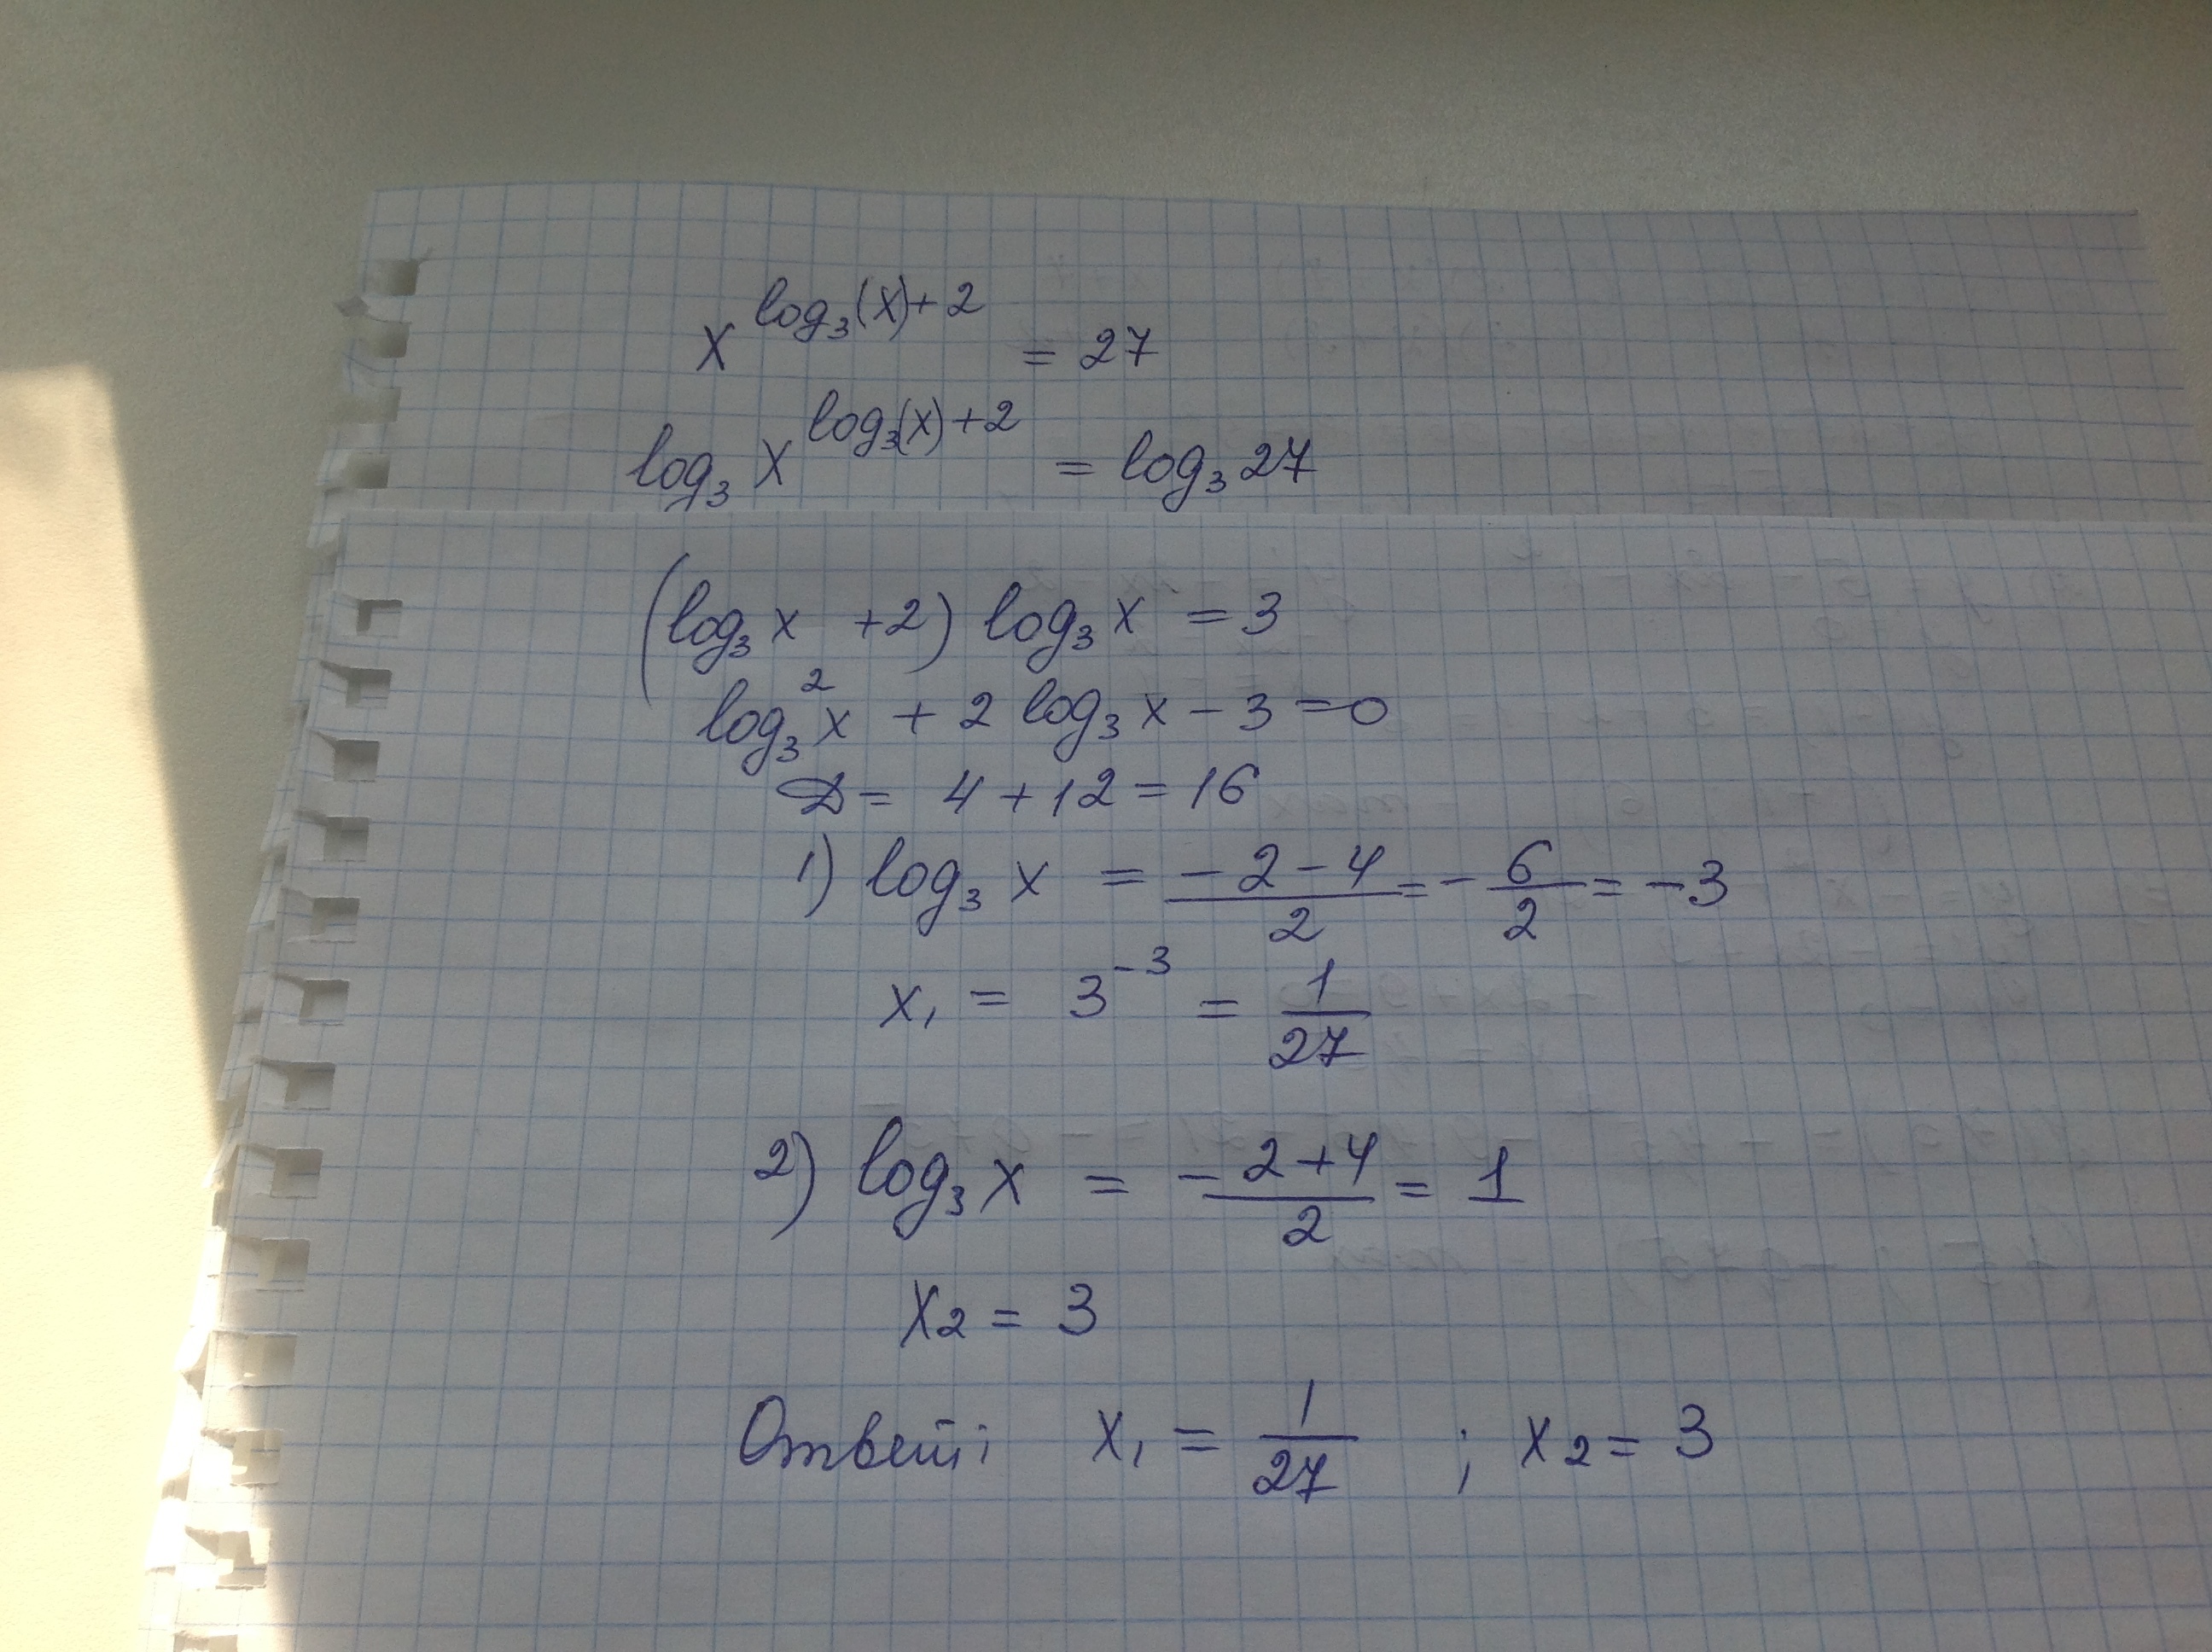 x^(log₃(x)+2) = 27
log₃ x^(log₃(x)+2) = log₃ 27
(log₃ x + 2) log₃ x = 3
log₃² x + 2 log₃ x - 3 = 0
D = 4 + 12 = 16
1) log₃ x = (-2-4)/2 = -6/2 = -3
x₁ = 3⁻³ = 1/27
2) log₃ x = (-2+4)/2 = 1
x₂ = 3
Ответ: x₁ = 1/27 ; x₂ = 3